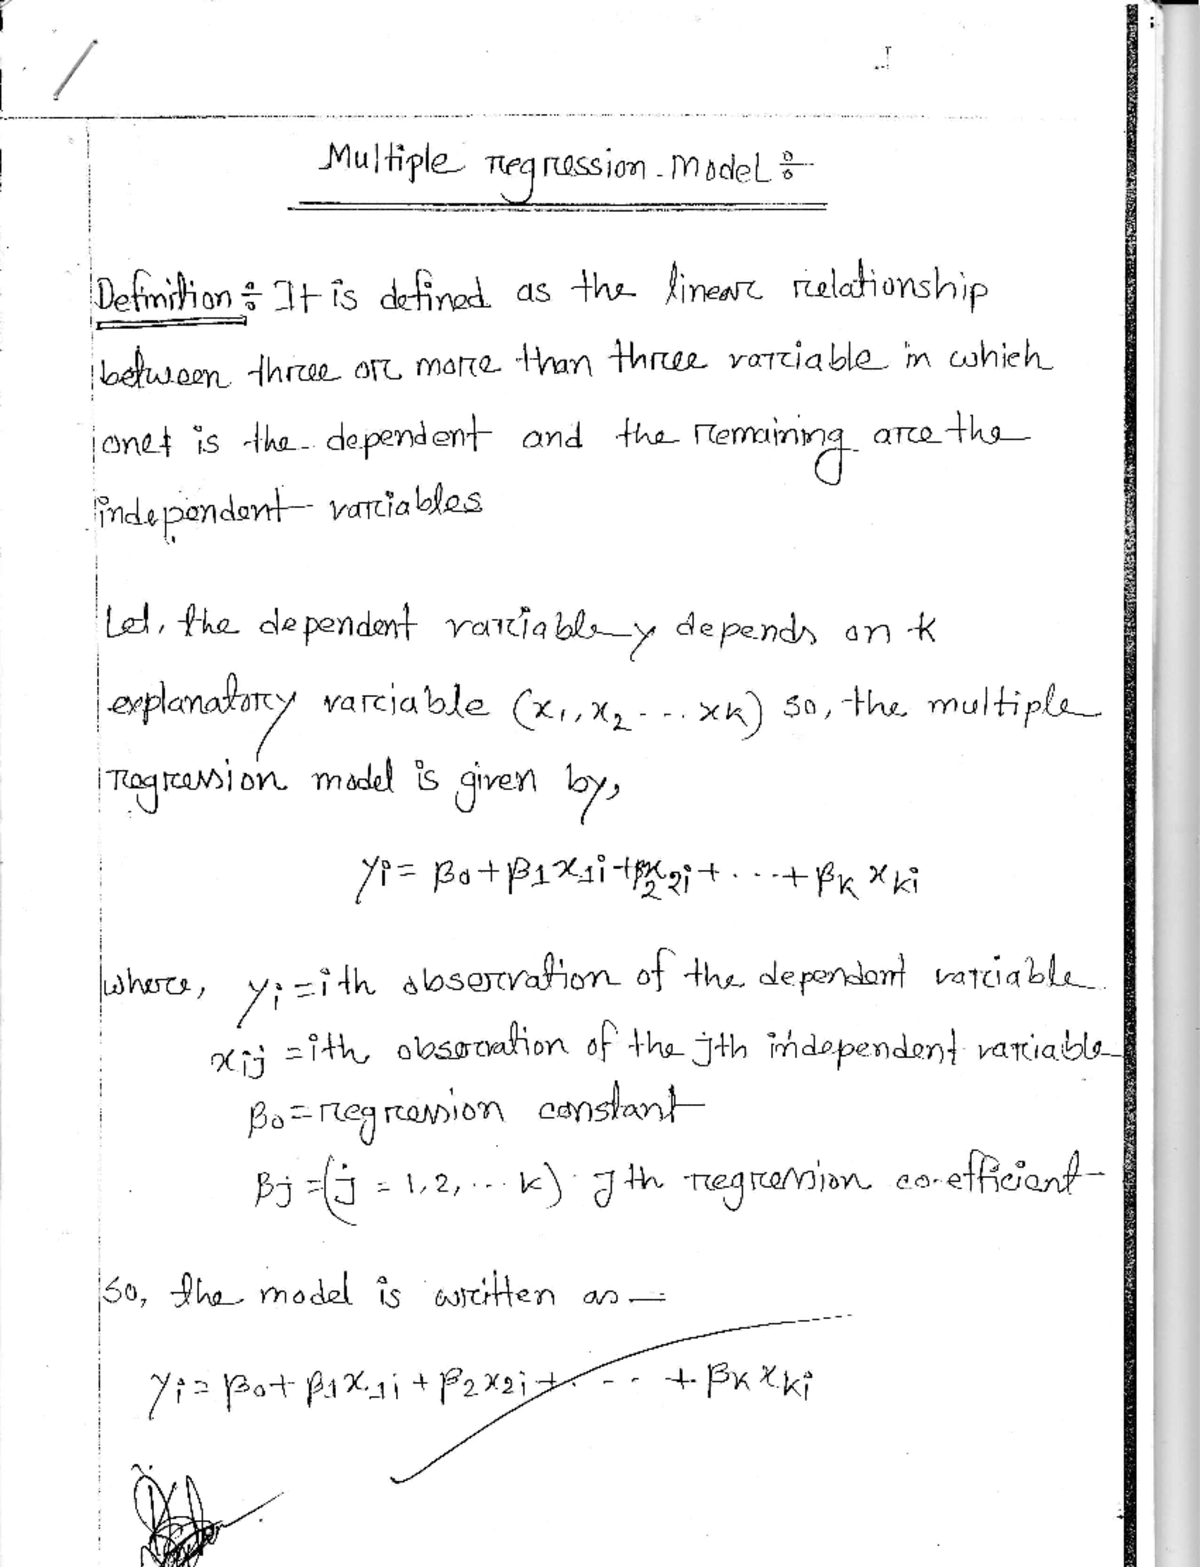 Multiple regression model ÷
Definition ÷ It is defined as the linear relationship
between three or more than three variable in which
one is the dependent and the remaining are the
independent variables
Let, the dependent variable y depends on k
explanatory variable (x₁, x₂ - .. xk) so, the multiple
regression model is given by,
yi = β0 + β1x1i + β2x2i + ... + βk xki
where, yi = ith observation of the dependent variable
xij = ith observation of the jth independent variable
β0 = regression constant
βj = (j = 1, 2, ... k) Jth regression co-efficient
so, the model is written as —
yi = β0 + β1x1i + β2x2i + . - - + βk xki